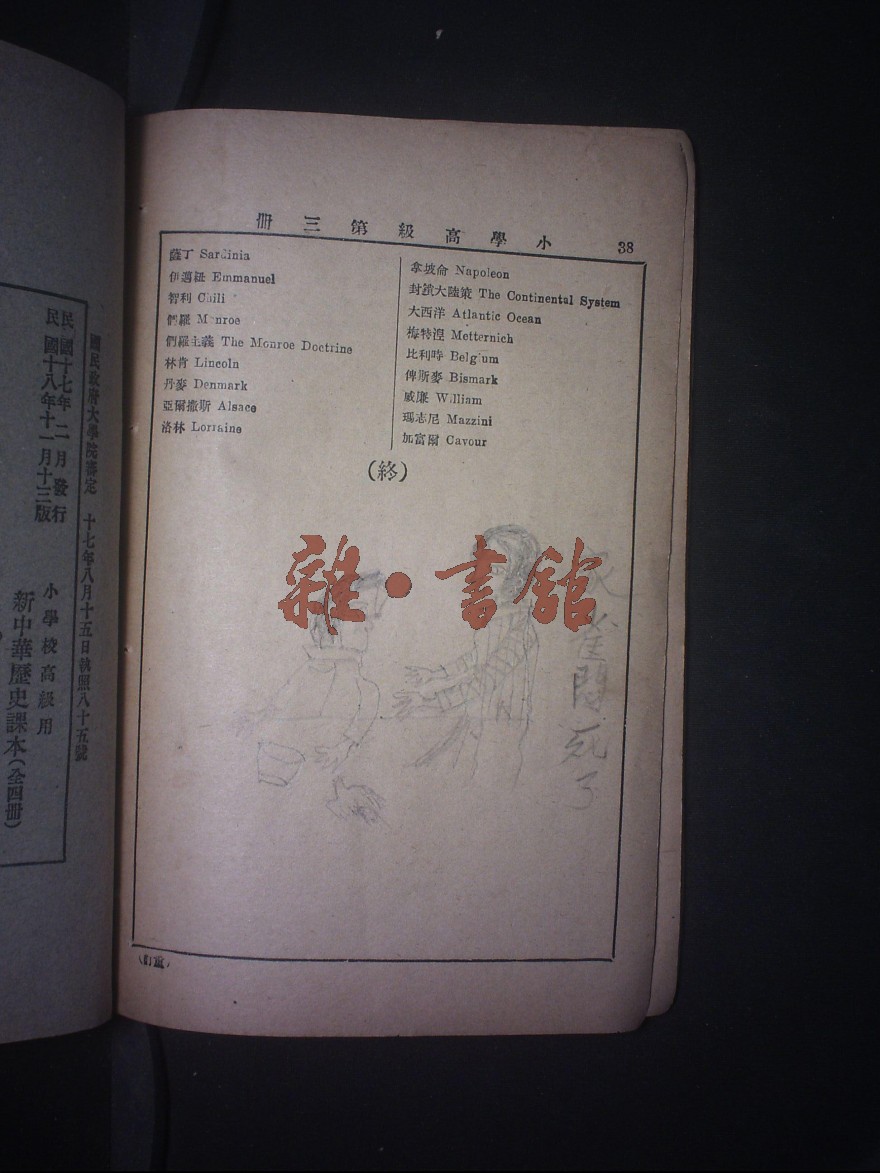 38
小學高級第三冊
拿坡侖 Napoleon
封鎖大陸策 The Continental System
大西洋 Atlantic Ocean
梅特湼 Metternich
比利時 Belgium
俾斯麥 Bismark
威廉 William
瑪志尼 Mazzini
加富爾 Cavour
薩丁 Sardinia
伊邁紐 Emmanuel
智利 Chili
們羅 Monroe
們羅主義 The Monroe Doctrine
林肯 Lincoln
丹麥 Denmark
亞爾撒斯 Alsace
洛林 Lorraine
(終)
雜·書館
悶死了
國民政府大學院審定 十七年八月十五日執照八十五號
民國十七年二月發行
民國十八年十一月十三版
小學校高級用
新中華歷史課本(全四冊)